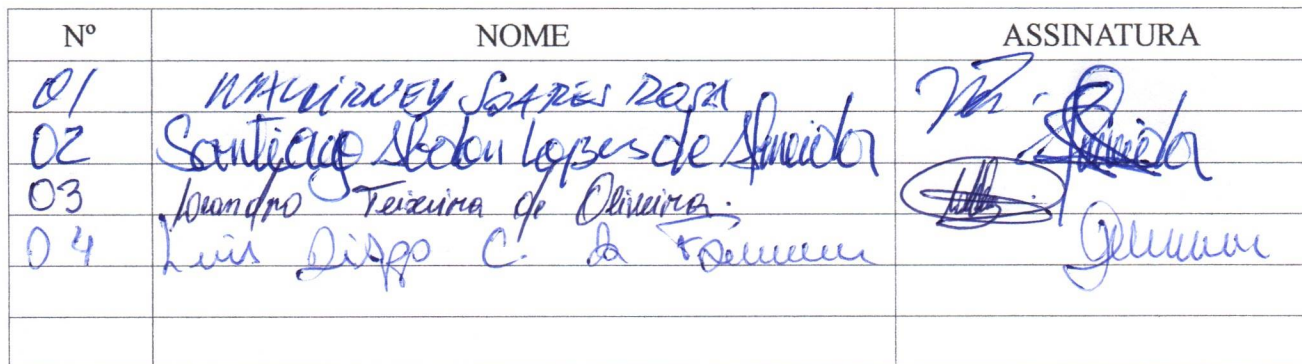 Nº NOME ASSINATURA
01 WALCIRNEY SOARES ROSA
02 Santiago Abdon Lopes de Almeida Almeida
03 Leandro Teixeira de Oliveira.
04 Luis Diego C. da